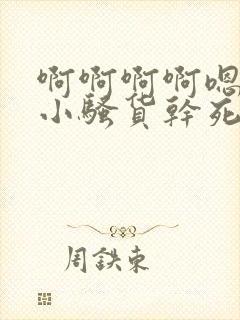 啊啊啊啊嗯
小騷货幹死
周鉄東